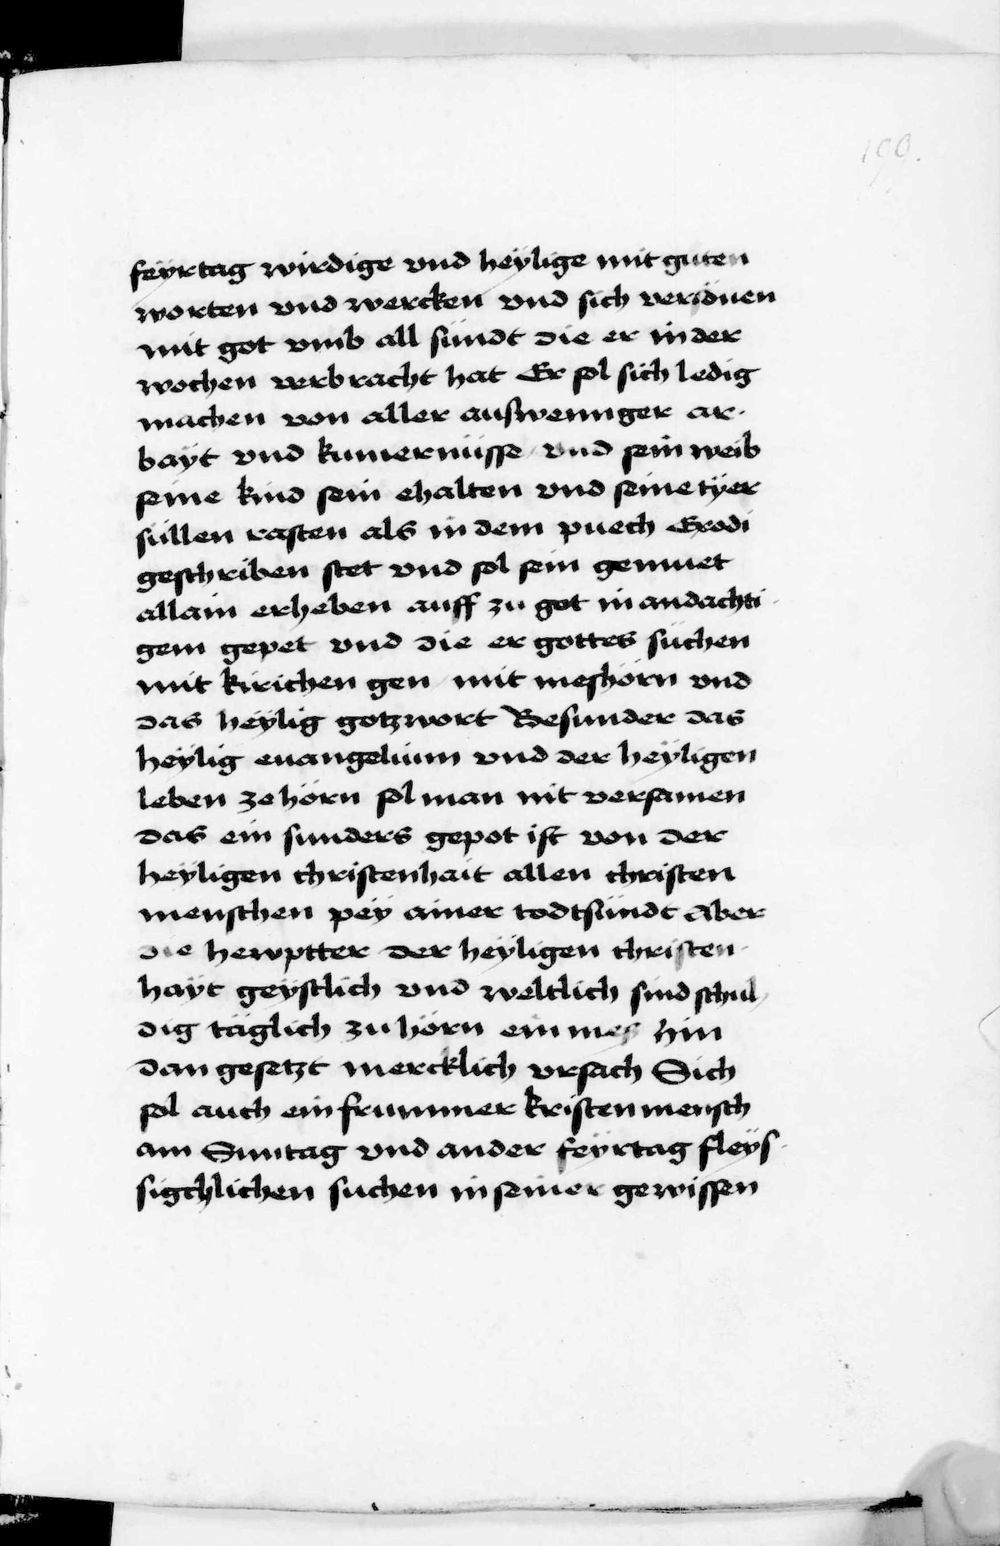 199.
feyrtag wirdige vnd heÿlige mit guten
worten vnd wercken vnd sich versünen
mit got vmb all sündt die er in der
wochen verbracht hat Er sol sich ledig
machen von aller auswenniger ar-
baÿt vnd kumernüsse / vnd sein weib
seine kind sein ehalten vnd seine tÿer
süllen rasten als in dem puech Exodi
geschriben stet vnd sol sein gemuet
allain erheben auff zu got in andachti-
gem gepet vnd die er gottes suchen
mit kirichen gen / mit meshörn vnd
das heÿlig gotzwort Besunder das
heÿlig euangelium vnd der heÿligen
leben ze hörn sol man nit versamen
das ein sunders gepot ist von der
heÿligen christenhait allen christen
menschen peÿ ainer todtsündt Aber
die hewptter der heÿligen christen-
haÿt geÿstlich vnd weltlich sind schul-
dig täglich zu hörn ein mes hin
dan gesetzt mercklich vrsach Sich
sol auch ein frummer kristen mensch
am Suntag vnd ander feÿrtag fleÿs-
sigchlichen suchen in seiner gewissen